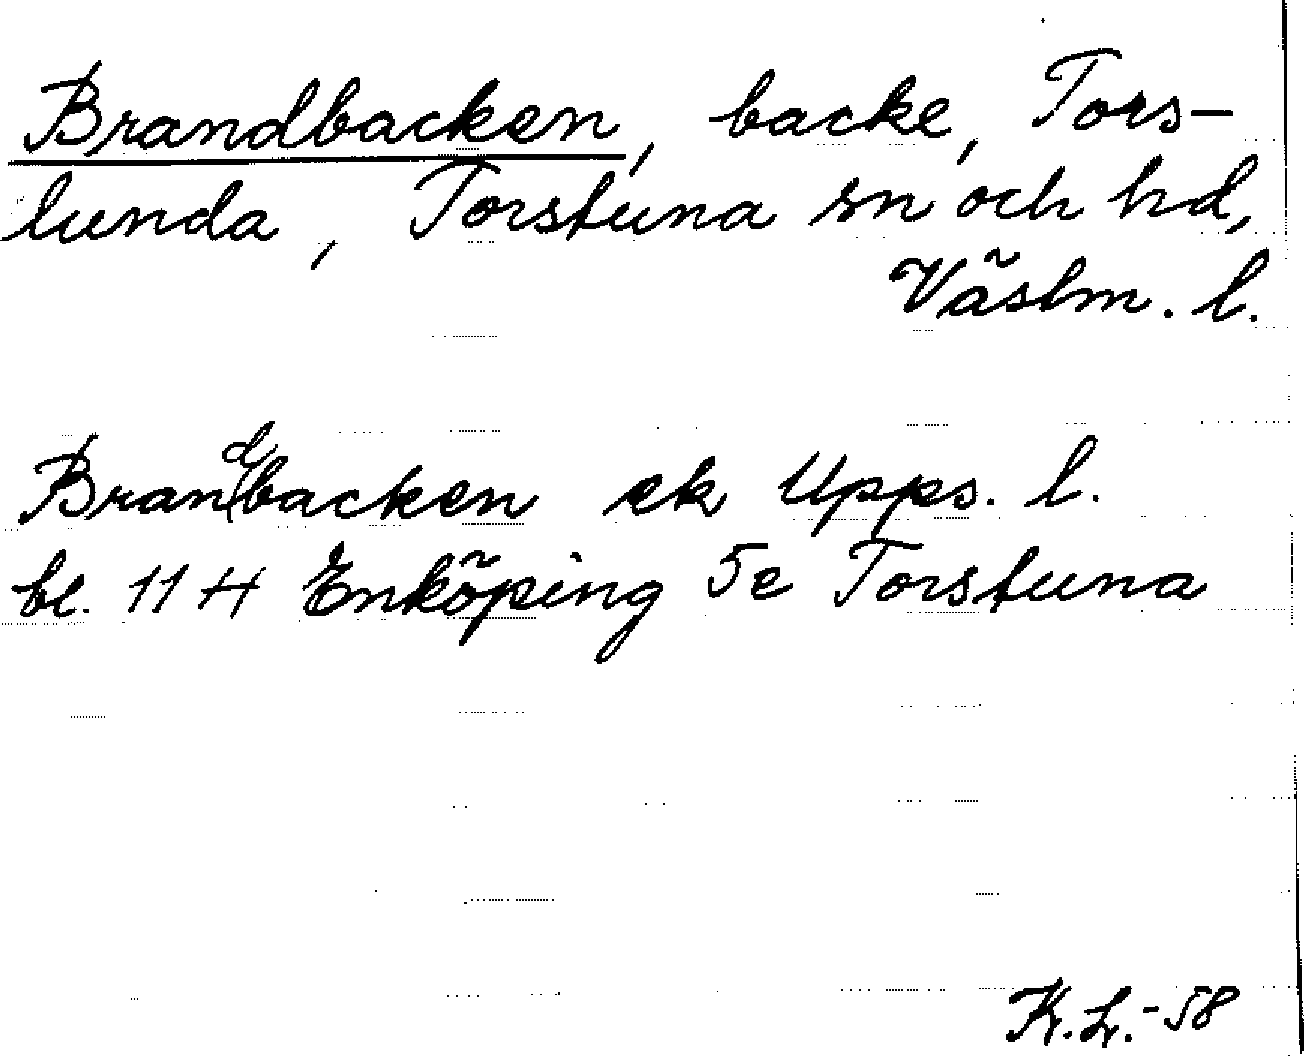 Brandbacken, backe, Tors-
lunda, Torstuna sn och hd,
Västm. l.
Brandbacken ek Upps. l.
bl. 11 H Enköping 5e Torstuna
K.L.-58